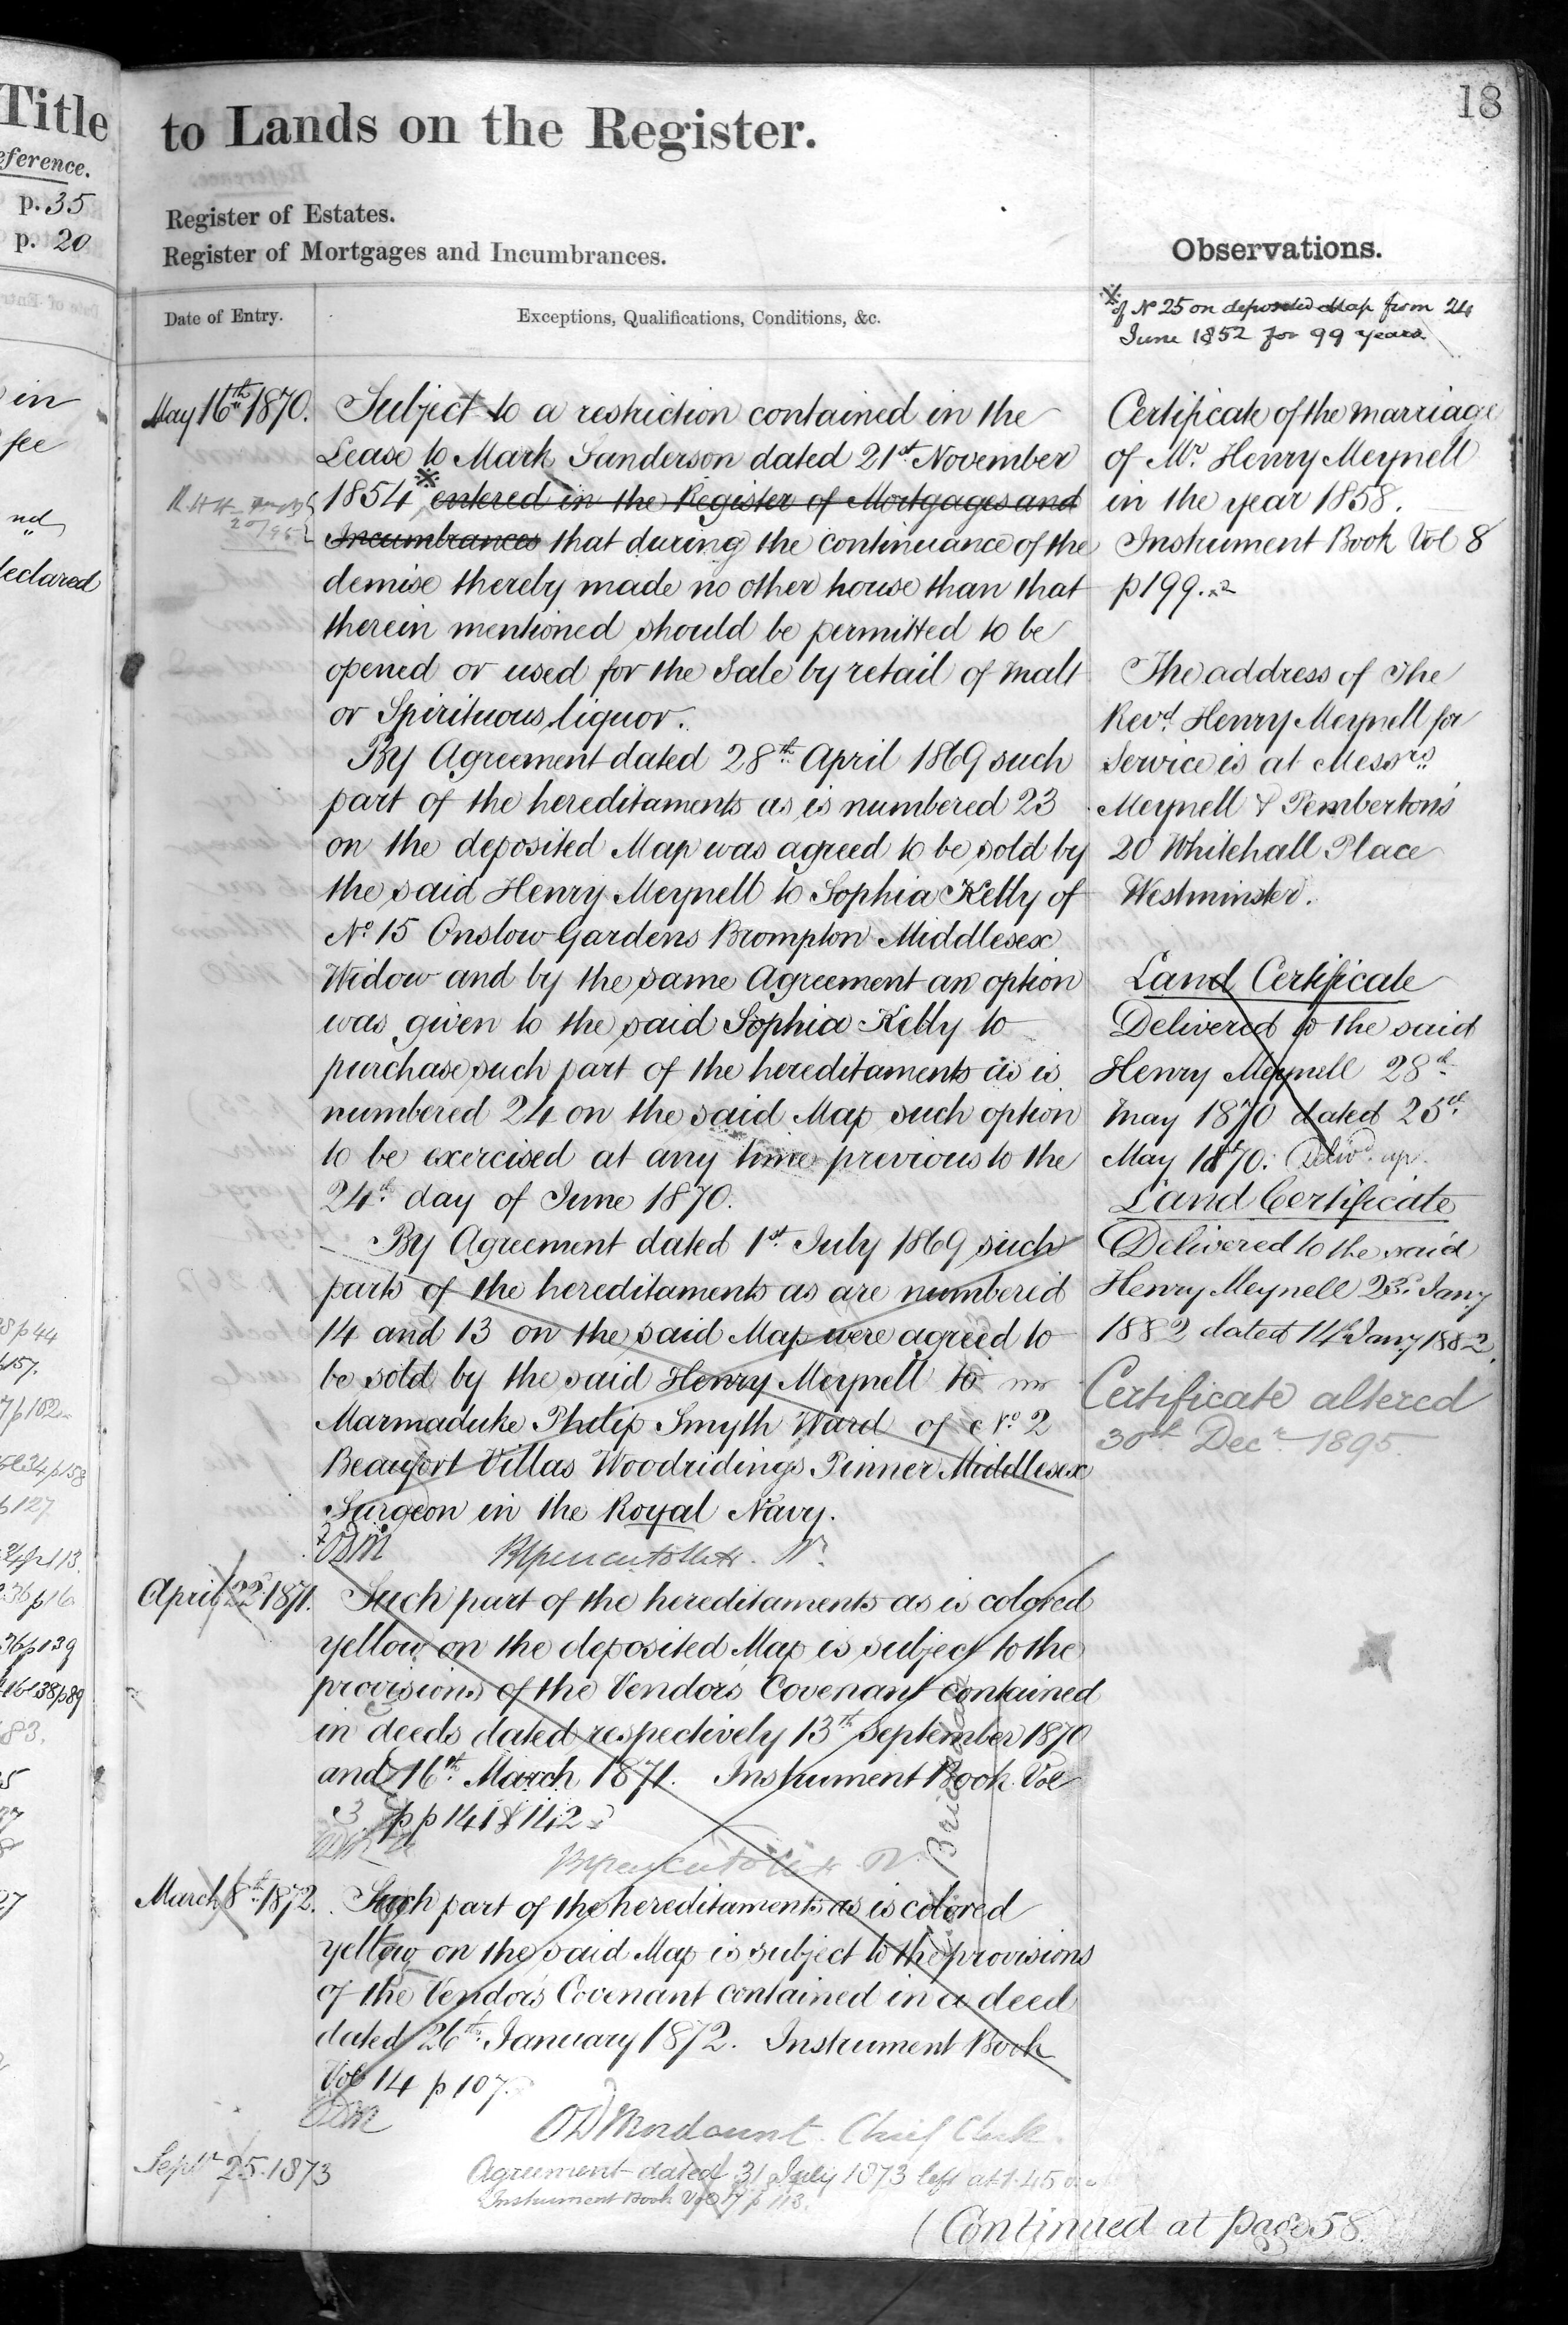 Title
eference.
p. 35
p. 20
in
fee
declared
18
to Lands on the Register.
Register of Estates.
Register of Mortgages and Incumbrances.
Date of Entry.
Exceptions, Qualifications, Conditions, &c.
May 16th 1870.
Subject to a restriction contained in the
Lease to Mark Sanderson dated 21st November
1854 ※ entered in the Register of Mortgages and
Incumbrances that during the continuance of the
demise thereby made no other house than that
therein mentioned should be permitted to be
opened or used for the Sale by retail of Malt
or Spirituous liquor.
By Agreement dated 28th April 1869 such
part of the hereditaments as is numbered 23
on the deposited Map was agreed to be sold by
the said Henry Meynell to Sophia Kelly of
No 15 Onslow Gardens Brompton Middlesex
Widow and by the same Agreement an option
was given to the said Sophia Kelly to
purchase such part of the hereditaments as is
numbered 24 on the said Map such option
to be exercised at any time previous to the
24th day of June 1870.
By Agreement dated 1st July 1869 such
parts of the hereditaments as are numbered
14 and 13 on the said Map were agreed to
be sold by the said Henry Meynell to
Marmaduke Philip Smyth Ward of No 2
Beaufort Villas Woodridings Pinner Middlesex
Surgeon in the Royal Navy.
ODM
April 22 1871.
Such part of the hereditaments as is colored
yellow on the deposited Map is subject to the
provisions of the Vendors Covenant contained
in deeds dated respectively 13th September 1870
and 16th March 1871. Instrument Book Vol
3 pp 141 & 142
March 8th 1872.
Such part of the hereditaments as is colored
yellow on the said Map is subject to the provisions
of the Vendor's Covenant contained in a deed
dated 26th January 1872. Instrument Book
Vol 14 p 107.
ODM
OD Mordaunt Chief Clerk
Septr 25. 1873
Agreement dated 31 July 1873 left at 1.45
Instrument Book Vol 17 p 113.
(Continued at page 58.
Observations.
※ of No 25 on deposited Map from 24
June 1852 for 99 years
Certificate of the marriage
of Mr. Henry Meynell
in the year 1858.
Instrument Book Vol 8
p 199.
The address of The
Revd. Henry Meynell for
Service is at Messrs
Meynell & Pemberton's
20 Whitehall Place
Westminster.
Land Certificate
Delivered to the said
Henry Meynell 28th
May 1870 dated 25th
May 1870. Delivd. up.
Land Certificate
Delivered to the said
Henry Meynell 23rd Jany
1882 dated 14th Jany 1882.
Certificate altered
30th Decr 1895.